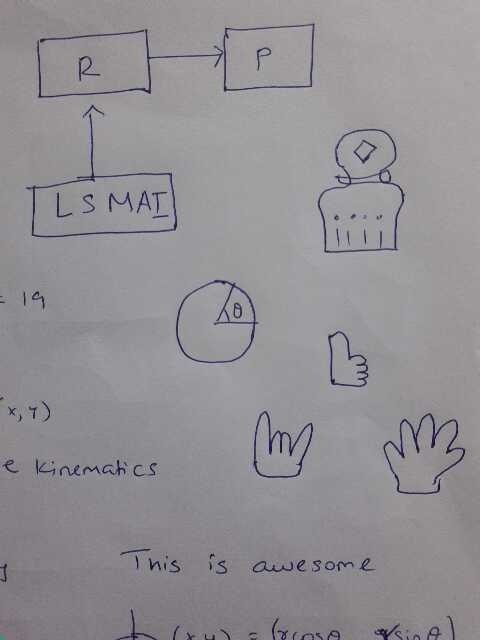 R
P
LSMAI
θ
= 19
x, y)
e kinematics
This is awesome
(x, y) = (rcosθ, rsinθ)